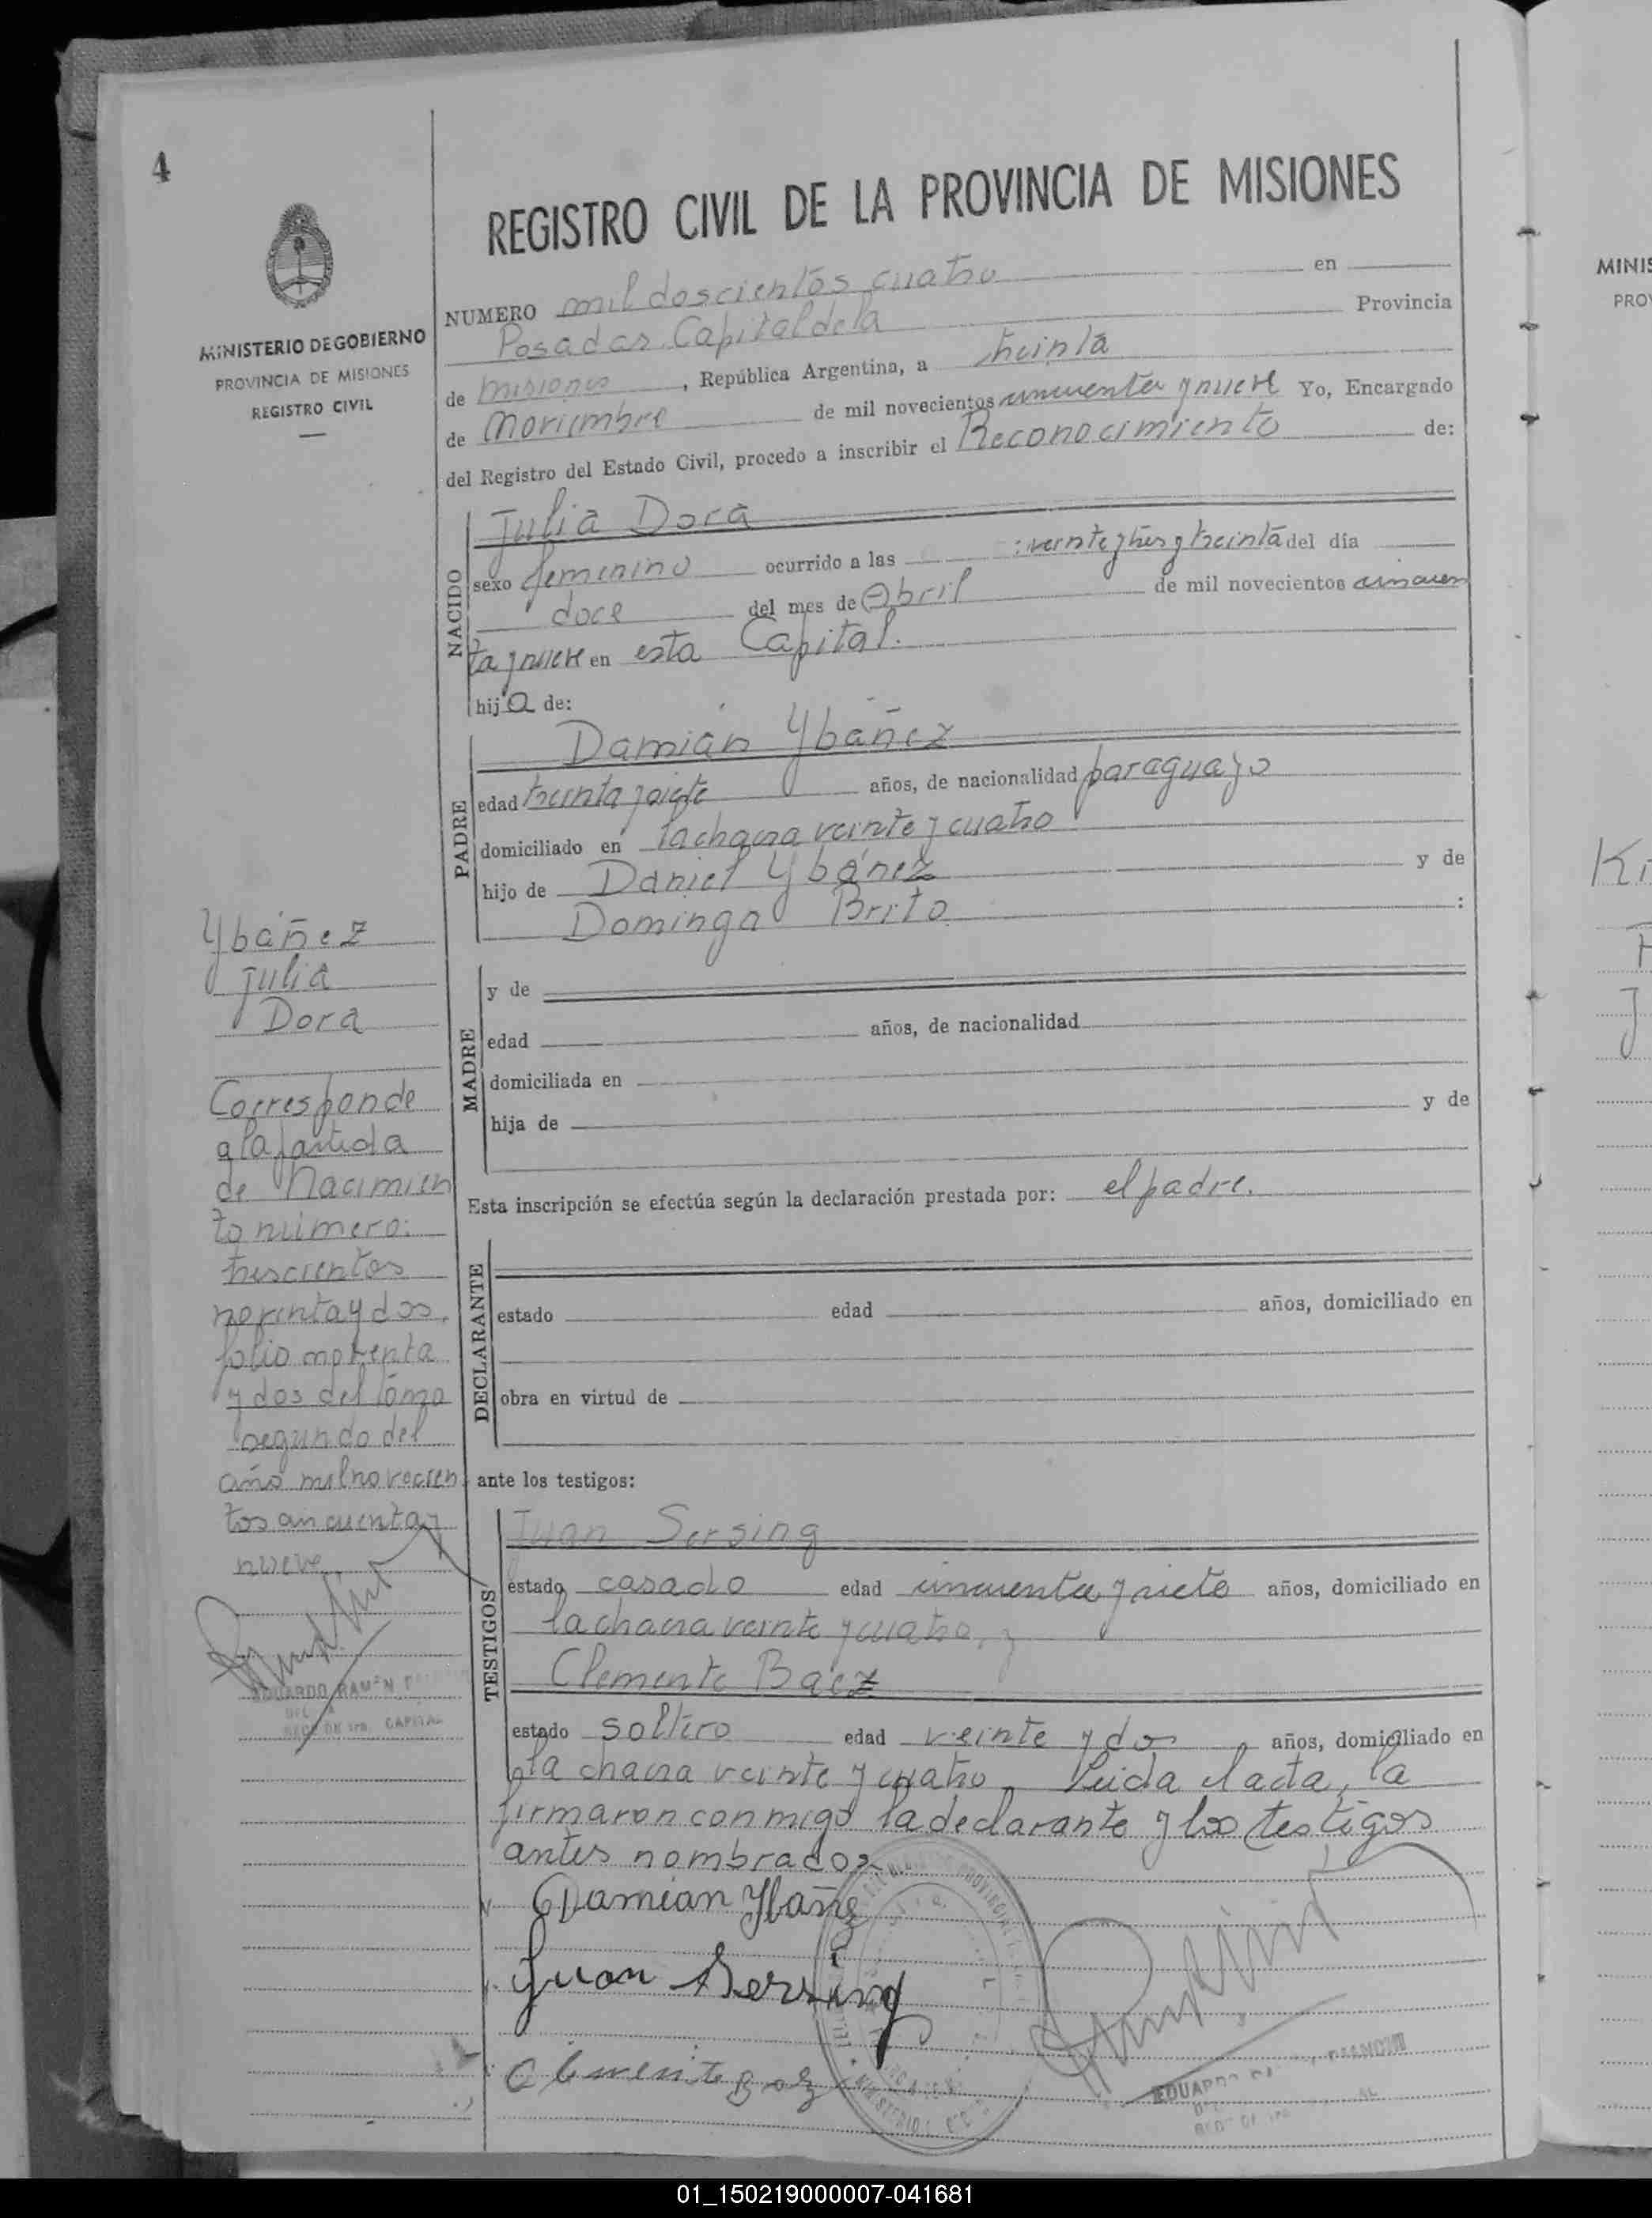 4
MINISTERIO DE GOBIERNO
PROVINCIA DE MISIONES
REGISTRO CIVIL
REGISTRO CIVIL DE LA PROVINCIA DE MISIONES
NUMERO mil doscientos cuatro en
Posadas Capital de la Provincia
de Misiones, República Argentina, a treinta
de Noviembre de mil novecientos cincuenta y nueve Yo, Encargado
del Registro del Estado Civil, procedo a inscribir el Reconocimiento de:
NACIDO
Julia Dora
sexo femenino ocurrido a las veinte y tres y treinta del día
doce del mes de Abril de mil novecientos cincuen
ta y nueve en esta Capital.
hija de:
PADRE
Damián Ybáñez
edad treinta y siete años, de nacionalidad paraguayo
domiciliado en la chacra veinte y cuatro
hijo de Daniel Ybáñez y de
Dominga Brito :
MADRE
y de
edad años, de nacionalidad
domiciliada en
hija de y de
Esta inscripción se efectúa según la declaración prestada por: el padre.
DECLARANTE
estado edad años, domiciliado en
obra en virtud de
ante los testigos:
TESTIGOS
Juan Sersing
estado casado edad cincuenta y siete años, domiciliado en
la chacra veinte y cuatro, y
Clemente Báez
estado soltero edad veinte y dos años, domiciliado en
la chacra veinte y cuatro. Leida el acta, la
firmaron conmigo la declarante y los testigos
antes nombrados
Damian Ybañez
Juan Sersing
Clemente Baez
Ybáñez
Julia
Dora
Corresponde
a la partida
de Nacimien
to número:
trescientos
noventa y dos,
folio noventa
y dos del tomo
segundo del
año mil novecien
tos cincuenta y
nueve
EDUARDO RAMÓN
CAPITAL
EDUARDO
MINIS
PRO
Ki
J
01_150219000007-041681